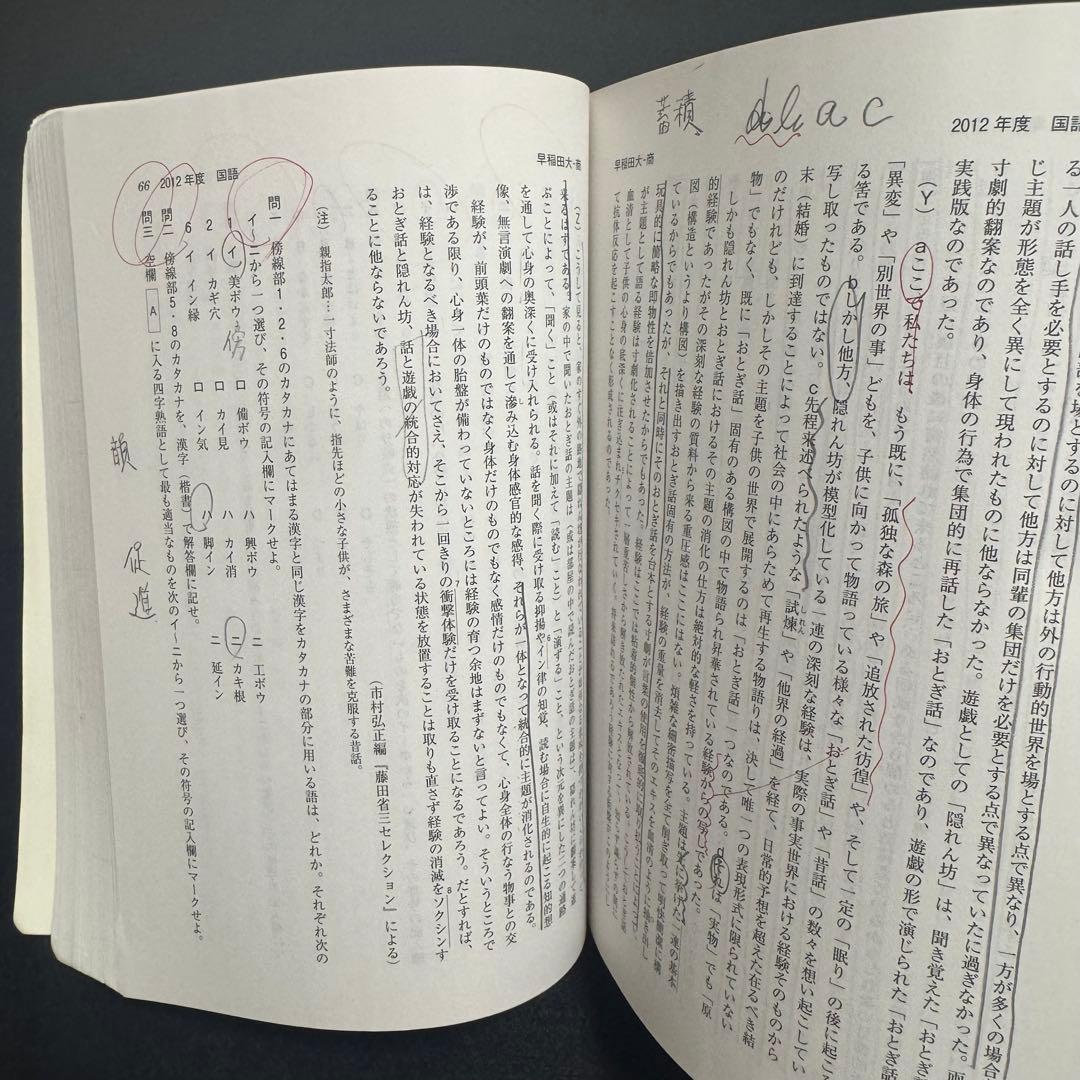 2012年度　国語
蓄積
d b a c
る一人の話し手を必要とするのに対して他方は同輩の集団だけを必要とする点で異なっていたに過ぎなかった。
じ主題が形態を全く異にして現われたものに他ならなかった。遊戯としての「隠れん坊」は、聞き覚えた「おとぎ
寸劇的翻案なのであり、身体の行為で集団的に再話した「おとぎ話」なのであり、遊戯の形で演じられた「おとぎ話
実践版なのであった。
（Y）　aここで私たちは、もう既に、「孤独な森の旅」や「追放された彷徨」や、そして一定の「眠り」の後に起こ
「異変」や「別世界の事」どもを、子供に向かって物語っている様々な「おとぎ話」や「昔話」の数々を想い起こしてい
る筈である。bしかし他方、隠れん坊が模型化している一連の深刻な経験は、実際の事実世界における経験そのものから
写し取ったものではない。c先程来述べられたような「試煉」や「他界の経過」を経て、日常的予想を超えた在るべき結
末（結婚）に到達することによって社会の中にあらためて再生する物語りは、決して唯一つの表現形式に限られていない
のだけれども、しかしその主題を子供の世界で展開するのは「おとぎ話」一つなのである。dそれは「実物」でも「原
物」でもなく、既に「おとぎ話」固有のある構図の中で物語られ昇華されている経験からの写しであった。
しかも隠れん坊とおとぎ話におけるその主題の消化の仕方は絶対的な軽さを持っている。主題に挙げた一連の基本
的経験であったがその深刻な経験の質料から来る重圧感はここにはない。煩雑な細密描写を全て削ぎ取って明快簡潔に構
図（構造というより構図）を描き出すおとぎ話固有の方法が、経験の重量を消去してそのエキスを血清のように抽き出し
ているからでもあったが、それと同時にそのおとぎ話を台本とする寸劇が言葉の使用を極限的に
玩具的に簡略な即物性を倍加させたからでもあった。
早稲田大-商
66　2012年度　国語
早稲田大-商
（Z）　こうして見ると、家のすぐ外の路地で
来るはずである。家の中で聞いたおとぎ話の主題は（或は部屋の中で読んだおとぎ話の主題は）
ぶことによって、「聞く」こと（或はそれに加えて「読む」こと）と「演ずる」こと、という次元を異にした二つの通路
を通して心身の奥深くに受け入れられる。話を聞く際に受け取る抑揚や6イン律の知覚、読む場合に自生的に起こる知的想
像、無言演劇への翻案を通して滲み込む身体感官的な感得、それらが一体となって統合的に主題が消化されるのである。
経験が、前頭葉だけのものではなく身体だけのものでもなく感情だけのものでもなくて、心身全体の行なう物事との交
渉である限り、心身一体の胎盤が備わっていないところには経験の育つ余地はまずないと言ってよい。そういうところで
は、経験となるべき場合においてさえ、そこから一回きりの7衝撃体験だけを受け取ることになるであろう。だとすれば、
おとぎ話と隠れん坊、話と遊戯の統合的対応が失われている状態を放置することは取りも直さず経験の消滅を8ソクシンす
ることに他ならないであろう。
（市村弘正編『藤田省三セレクション』による）
（注）　親指太郎…一寸法師のように、指先ほどの小さな子供が、さまざまな苦難を克服する昔話。
問一　傍線部1・2・6のカタカナにあてはまる漢字と同じ漢字をカタカナの部分に用いる語は、どれか。それぞれ次の
イ〜ニから一つ選び、その符号の記入欄にマークせよ。
1　イ　美ボウ　ロ　備ボウ　ハ　興ボウ　ニ　工ボウ
傍
2　イ　カギ穴　ロ　カイ見　ハ　カイ消　ニ　カキ根
6　イ　イン縁　ロ　イン気　ハ　脚イン　ニ　延イン
問二　傍線部5・8のカタカナを、漢字（楷書）で解答欄に記せ。
韻　促進
問三　空欄 A に入る四字熟語として最も適当なものを次のイ〜ニから一つ選び、その符号の記入欄にマークせよ。